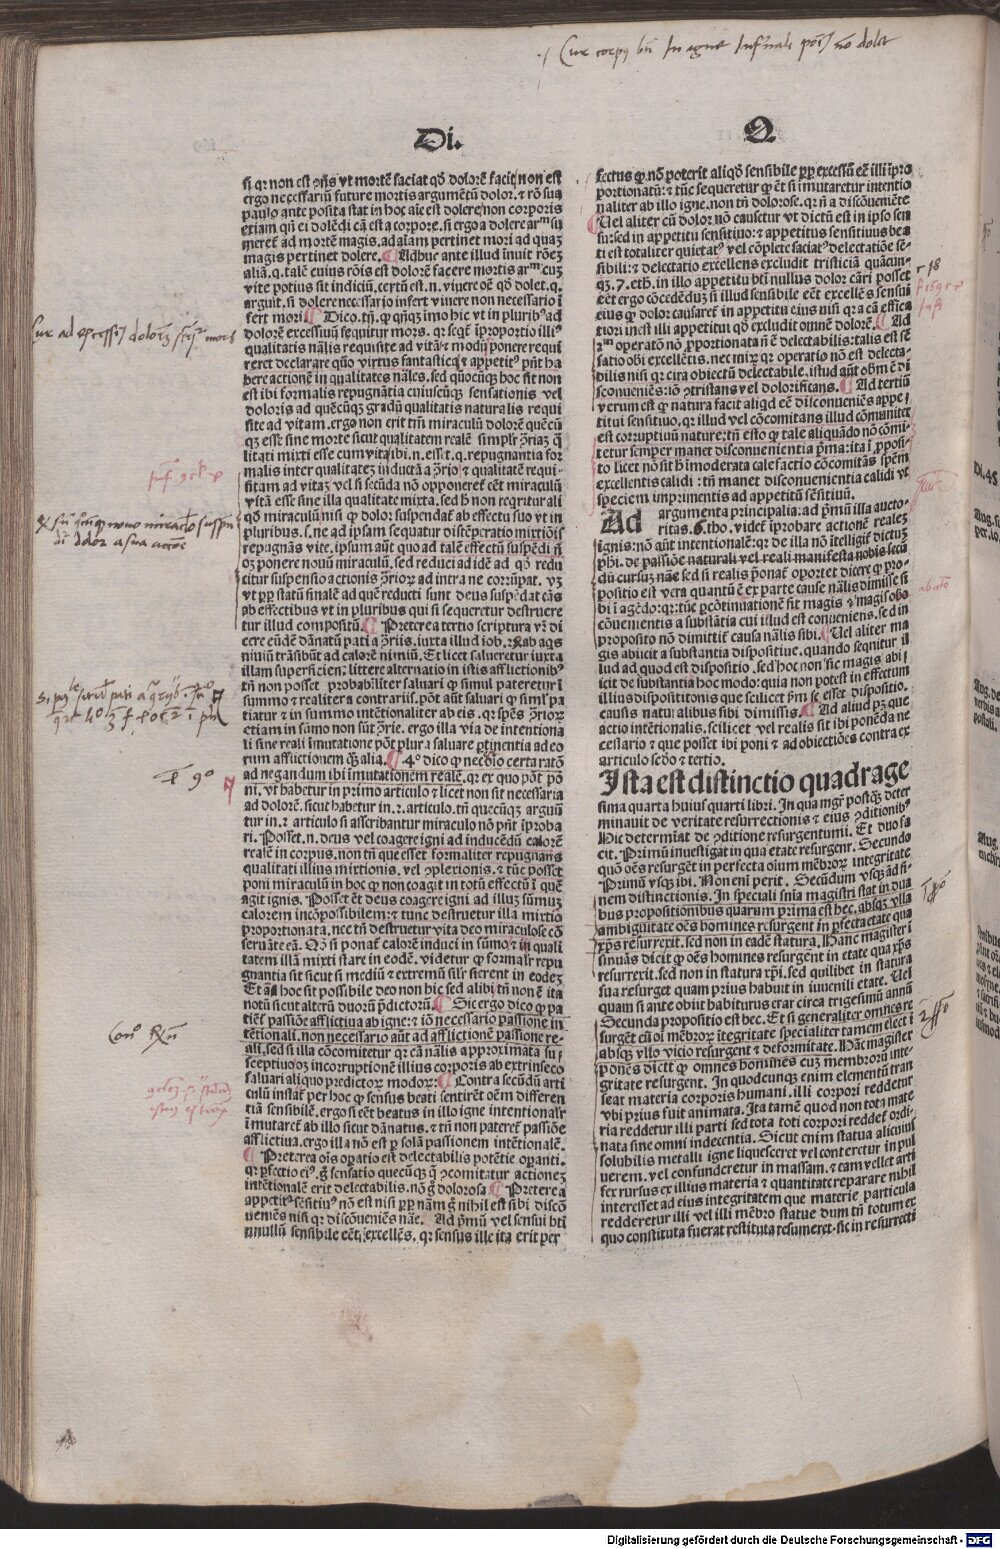 Di.
Q
si qr non est ꝯñs vt mortē faciat qđ dolorē facit, non est
ergo necessariū future mortis argumētū dolor. ⁊ rō sua
paulo ante posita stat in hoc aīe est dolere, non corporis
etiam qñ ei dolēdi cā est a corpore. si ergo a dolere arᵐ su
meret̄ ad mortē magis. ad aīam pertinet mori ad quaꝫ
magis pertinet dolere. ¶ Adhuc ante illud inuit rōeꝫ
aliā. q. talē cuius rōis est dolorē facere mortis arᵐ cuꝫ
vite potius sit indiciū, certū est. n. viuere oē qđ dolet. q.
arguit. si dolere necessario infert viuere non necessario ī
fert mori ¶ Dico. tñ. ꝙ qñqꝫ imo hic vt in pluribꝰ ad
dolorē excessiuū sequitur mors. qr seqt̄ īproportio illiꝰ
qualitatis nālis requisite ad vitā. ⁊ modū ponere requi
reret declarare quō virtus fantastica ⁊ appetitꝰ pñt ha
bere actionē in qualitates nāles. sed quōcūqꝫ hoc sit non
est ibi formalis repugnātia cuiuscūqꝫ sensationis vel
doloris ad quēcūqꝫ gradū qualitatis naturalis requi
site ad vitam. ergo non erit tm̄ miraculū dolorē quēcū
qꝫ esse sine morte sicut qualitatem realē simplr ꝯriaꝫ q̄
litati mixti esse cum vita ibi. n. esset. q. repugnantia for
malis inter qualitateꝫ inductā a ꝯrio ⁊ qualitatē requi
sitam ad vitaꝫ vel si secūda nō opponeret̄ eēt miraculū
vitā esse sine illa qualitate mixta. sed hͥ non reqritur ali
qđ miraculū nisi ꝙ dolor suspendat̄ ab effectu suo vt in
pluribus. s. ne ad ipsam sequatur distēperatio mixtiōis
repugnās vite. ipsum aūt quo ad talē effectū suspēdi ñ
oꝫ ponere nouū miraculū. sed reduci ad idē ad qđ redu
citur suspensio actionis ꝯrioꝝ ad intra ne corrūpat. vꝫ
vt ꝑp statū finalē ad quē reducti sunt deus suspēdat cās
ab effectibus vt in pluribus qui si sequeretur destruere
tur illud compositū. ¶ Preterea tertio scriptura vr̄ di
cere eūdē dānatū pati a ꝯriis. iuxta illud iob. Ab aqs
niuiū trāsibūt ad calorē nimiū. Et licet salueretur iuxta
illam superficiem; littere alternatio in istis afflictionibꝰ
tñ non posset probabiliter saluari ꝙ simul pateretur ī
summo ⁊ realiter a contrariis. pōt aūt saluari ꝙ siml̓ pa
tiatur ⁊ in summo intētionaliter ab eis. qr spēs ꝯrioꝝ
etiam in sūmo non sūt ꝯrie. ergo illa via de intentiona
li sine reali īmutatione pōt plura saluare ꝑtinentia ad eo
rum afflictionem q̄ꝫ alia. ¶ 4° dico ꝙ necō̄ io certa ratō
ad negandum ibi īmutationem realē. qr ex quo pōt pō
ni. vt habetur in primo articulo ⁊ licet non sit necessaria
ad dolorē. sicut habetur in. 2. articulo. tñ quecūqꝫ arguū
tur in. 2 articulo si ascribantur miraculo nō pñt īproba
ri. Posset. n. deus vel coagere igni ad inducēdū calorē
realē in corpus. non tñ que esset formaliter repugnans
qualitati illius mixtionis. vel ꝯplexionis. ⁊ tūc posset
poni miraculū in hoc ꝙ non coagit in totū effectū ī quē
agit ignis. Posset ēt deus coagere igni ad illuꝫ sūmuꝫ
calorem incōpossibilem: ⁊ tunc destruetur illa mixtio
proportionata. nec tñ destruetur vita deo miraculose cō
seruāte eā. Qđ si ponat̄ calorē induci in sūmo in quali
tatem illā mixti stare in eodē. videtur ꝙ formalr repu
gnantia sit sicut si mediū ⁊ extremū silr fierent in eodeꝫ
Et an hoc sit possibile deo non hic sed alibi tñ non ē ita
notū sicut alterū duorū p̄dictorū. ¶ Sic ergo dico ꝙ pa
tiēt̄ passiōe afflictiua ab igne: ⁊ iō necessario passione in
tētionali. non necessario aūt ad afflictionē passione re
ali. sed si illa cōcomitetur qr cā nālis approximata su
sceptiuo: incorruptionē illius corporis ab extrinseco
saluari aliquo predictoꝝ modoꝝ: ¶ Contra secūdū arti
culū instat̄ per hoc ꝙ sensus beati sentiret oēm differen
tiā sensibilē. ergo si eēt beatus in illo igne intentionalr
īmutaret̄ ab illo sicut dānatus. ⁊ tñ non pateret̄ passiōe
afflictiua. ergo illa nō est ꝑ solā passionem intētionalē.
¶ Preterea ois opatio est delectabilis potētie opanti.
qr ꝑfectio eiꝰ. ḡ sensatio quecūqꝫ q̄ ꝯcomitatur actioneꝫ
intētionalē erit delectabilis. nō ḡ dolorosa ¶ Preterea
appetitꝰ sēsitiuꝰ nō est nisi ꝑp nām ḡ nihil est sibi discō
ueniēs nisi qr discōueniēs nāe. Ad pᵐū vel sensui bti
nnullū sensibile eēt, excellēs. qr sensus ille ita erit per
fectus ꝙ nō poterit aliqđ sensibile ꝑp excessū eē illi īpro
portionatū: ⁊ tūc sequeretur ꝙ ēt si imutaretur intentio
naliter ab illo igne. non tñ dolorose. qr ñ a discōueniēte
¶ Uel aliter cū dolor nō causetur vt dictū est in ipso sen
su: sed in appetitu sensitiuo: ⁊ appetitus sensitiuus bea
ti est totaliter quietatꝰ vel cōplete saciatꝰ delectatiōe sē
sibili: ⁊ delectatio excellens excludit tristiciā quācun
qꝫ. 7. etb. in illo appetitu bti nullus dolor cāri posset
eēt ergo cōcedēduꝫ si illud sensibile eēt excellēs sensui
eius ꝙ dolor causaret̄ in appetitu eius nisi qr a cā effica
tiori inest illi appetitui qđ excludit omnē dolorē. ¶ Ad
2ᵐ operatō nō ꝓportionata ñ ē delectabilis: talis est sē
satio obi excellētis. nec mirꝫ qr operatio nō est delecta
bilis nisi qr cira obiectū delectabile. istud aūt obm ē di
scōueniēs: iō ꝯtristans vel dolorificans. ¶ Ad tertiū
verum est ꝙ natura facit aliqd eē discōueniēs appe
titui sensitiuo. qr illud vel cōcomitans illud cōmuniter
est corruptiuū nature: tñ esto ꝙ tale aliquādo nō cōmi
tetur semper manet disconuenientia pᵐa: ita ī ꝓposi
to licet nō sit hͥ īmoderata calefactio cōcomitās spēm
excellentis calidi: tñ manet disconuenientia calidi vt
speciem imprimentis ad appetitū sēsitiuū.
Ad argumenta principalia: ad pᵐū illa aucto
ritas. 6. tho. videt̄ īprobare actionē realeꝫ
ignis: nō aūt intentionalē: qr de illa nō ītelligit̄ dictuꝫ
phi. de passiōe naturali vel reali manifesta nobis secū
dū cursuꝫ nāe sed si realis ponat̄ oportet dicere ꝙ pro
positio est vera quantū ē ex parte cause nālis dimisse si
bi ī agēdo: qr: tūc ꝑ cōtinuationē fit magis ⁊ magis oho
cōuenientis a substātia cui illud est conueniens. sed in
proposito nō dimittit̄ causa nālis sibi. ¶ Uel aliter ma
gis abiicit a substantia dispositiue. quando seqnitur il
lud ad quod est dispositio. sed hoc non sic magis abi
icit de substantia hoc modo: quia non potest in effectum
illius dispositionis que scilicet pm se esset dispositio.
causis naturalibus sibi dimissis. ¶ Ad aliud pꝫ que
actio intētionalis. scilicet vel realis sit ibi ponēda ne
cessario ⁊ que posset ibi poni ⁊ ad obiectiōes contra ex
articulo secō ⁊ tertio.
Ista est distinctio quadrage
sima quarta huius quarti libri. In qua mgr̄ postqꝫ deter
minauit de veritate resurrectionis ⁊ eius ꝯditionibꝰ
Hic determīat de ꝯditione resurgentumi. Et duo fa
cit. Primū inuestigat in qua etate resurgent. Secundo
quō oēs resurgēt in perfecta oīum mēbroꝝ integritate
Primū vsqꝫ ibi. Non enī perit. Secūdum vsqꝫ ad fi
nem distinctionis. In speciali snīa magistri stat in dua
bus propositionibus quarum prima est hec. absqꝫ vlla
ambiguitate oēs homines resurgent in ꝑfecta etate qua
xp̄s resurrexit. sed non in eadē statura. Hanc magister ī
sinuās dicit ꝙ oēs homines resurgent in etate qua xp̄s
resurrexit. sed non in statura xp̄i. sed quilibet in statura
sua resurget quam prius habuit in iuuenili etate. Vel
quam si ante obiit habiturus erar circa trigesimū annū
Secunda propositio est hec. Et si generaliter omnes re
surgēt cū oī mēbroꝝ ītegritate specialiter tamem elect ī
absqꝫ vllo vicio resurgent ⁊ deformitate. Hāc magister
ponēs dicit ꝙ omnes homines cuꝫ membroꝝ inte
gritate resurgent. In quodcunqꝫ enim elementū tran
seat materia corporis humani. illi corpori reddetur
vbi prius fuit animata. Ita tamē quod non tota mate
ria reddetur illi parti sed tota toti corpori reddet̄ ordi
nata sine omni indecentia. Sicut enim statua alicuius
solubilis metalli igne liquesceret vel conteretur in pul
uerem. vel confunderetur in massam. ⁊ eam vellet arti
fex rursus ex illius materia ⁊ quantitate reparare nihil
interesset ad eius integritatem que materie particula
redderetur illi vel illi mēbro statue dum tñ totum ex
quo constituta fuerat restituta resumeret. sic in resurrecti
Digitalisierung gefördert durch die Deutsche Forschungsgemeinschaft - DFG